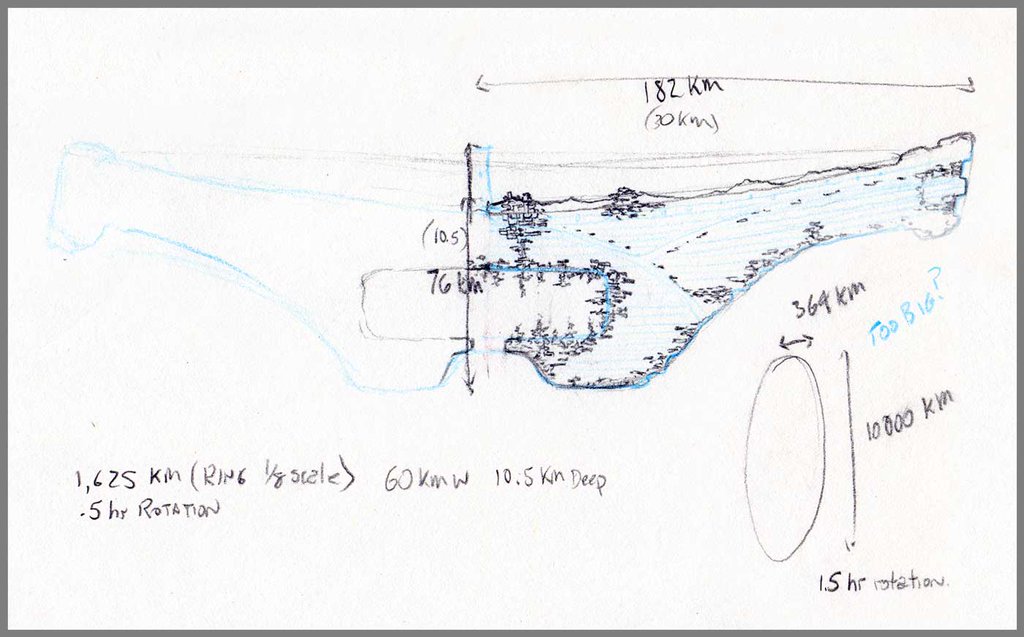 182 Km
(30 Km)
(10.5)
76 km
364 KM
TOO BIG?
10000 KM
1,625 KM (RING 1/8 scale) 60 KM W 10.5 Km Deep
.5 hr ROTATION
1.5 hr rotation.